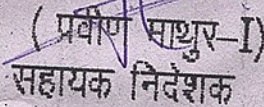 ( प्रवीण माथुर-I)
सहायक निदेशक